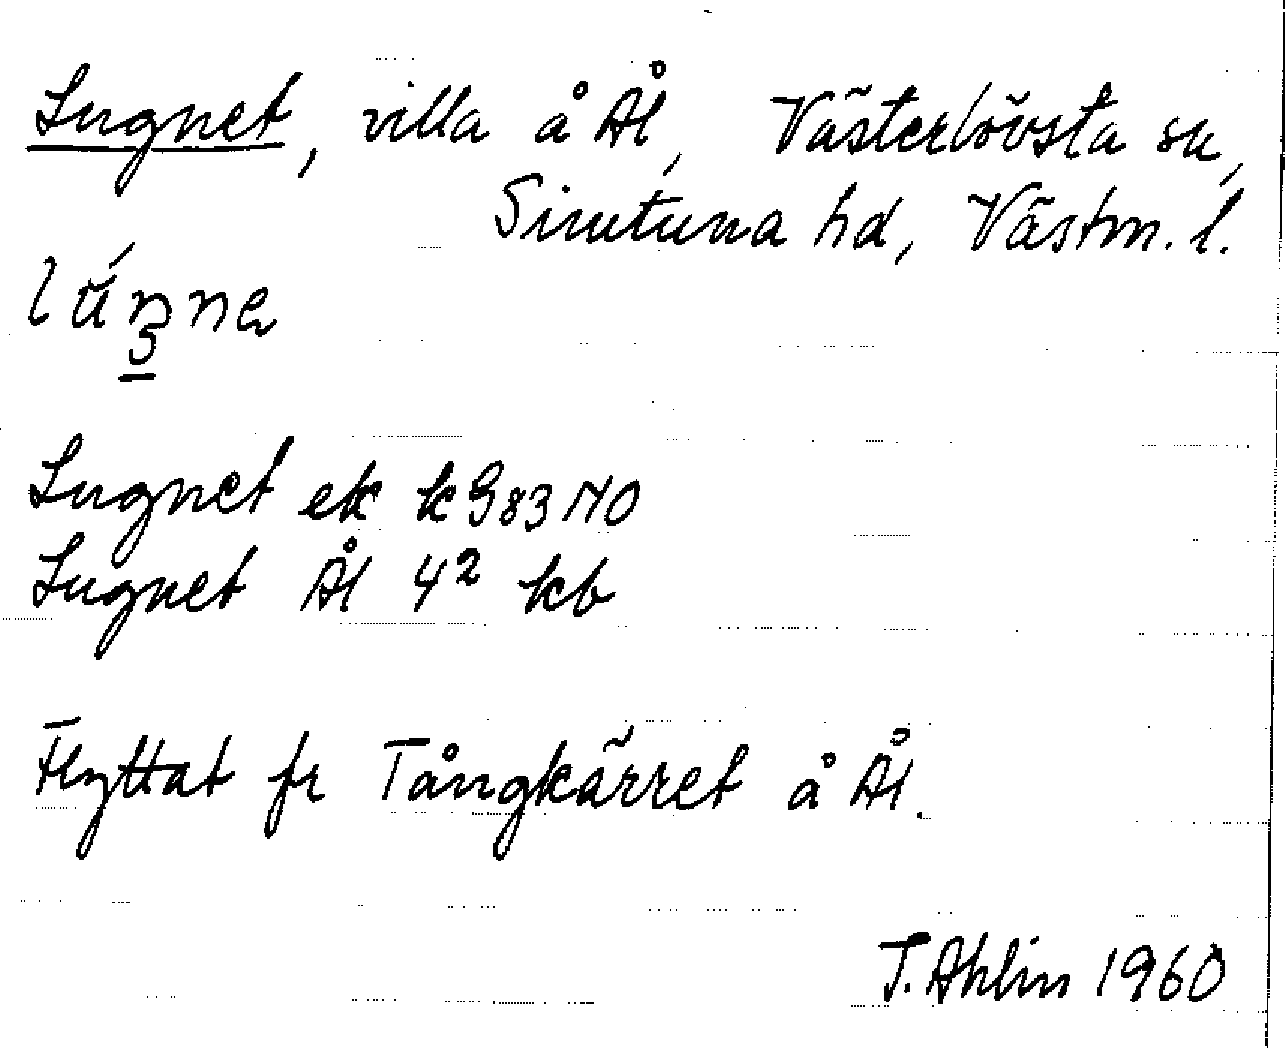 Lugnet, villa å Ål, Västerlövsta sn,
Simtuna hd, Västm. l.
Lugnet ek kG83NO
Lugnet Ål 4² kb
Flyttat fr Tångkärret å Ål.
T. Ahlin 1960